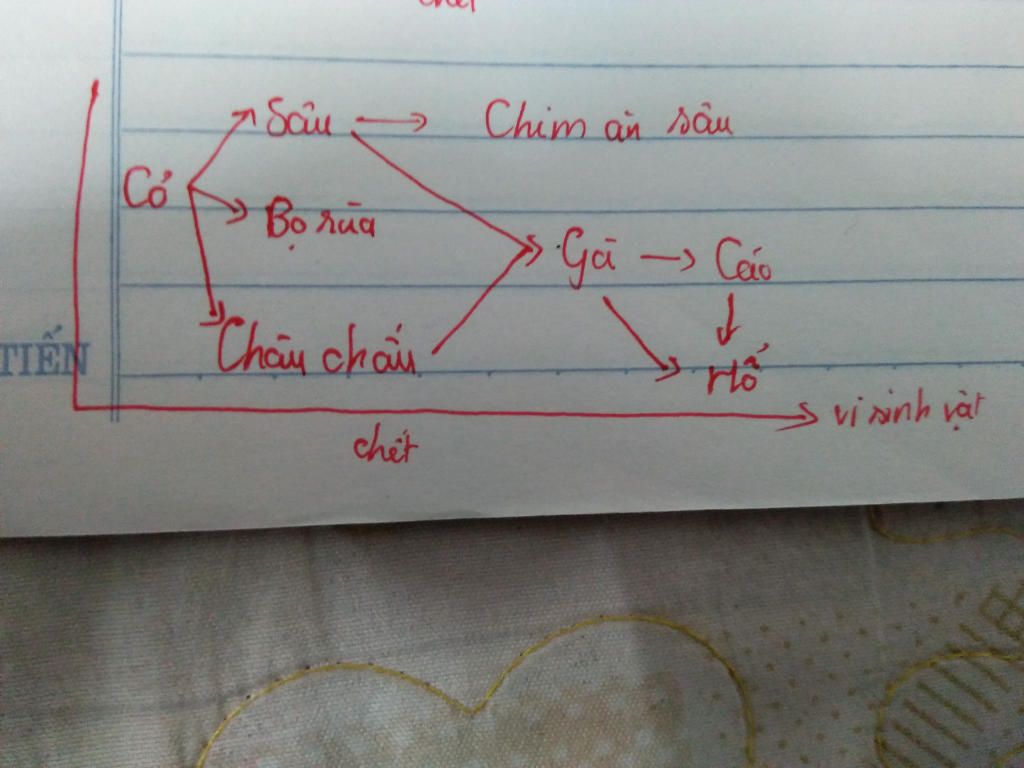 chết
Sâu → Chim ăn sâu
Cỏ
Bọ rùa
Gà → Cáo
Châu chấu
TIẾN
Hổ
vi sinh vật
chết